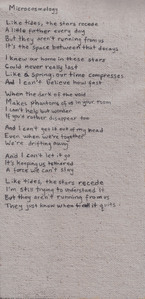 Microcosmology
Like tides, the stars recede
A little farther every day
But they aren't running from us
It's the space between that decays
I knew our home in these stars
Could never really last
Like a spring, our time compresses
And I can't believe how fast
When the dark of the void
Makes phantoms of us in your room
I can't help but wonder
If you'd rather disappear too
And I can't get it out of my head
Even when we're together
We're drifting away
And I can't let it go
It's keeping us tethered
A force we can't slay
Like tides, the stars recede
I'm still trying to understand it
But they aren't running from us
They just know when to quit.